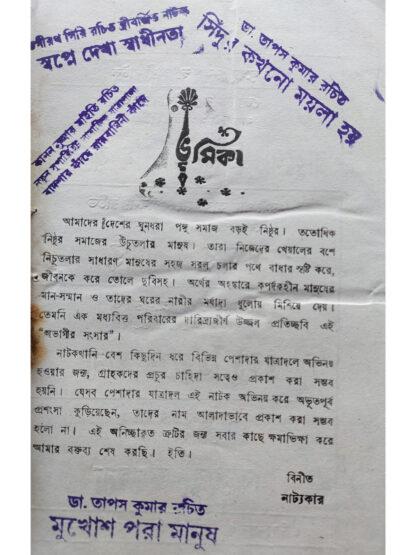 ভগীরথ গিরি রচিত স্ত্রীবর্জিত নাটক
স্বপ্নে দেখা স্বাধীনতা
ডাঃ তাপস কুমার রচিত
সিঁদুর কখনো ময়লা হয়
কুমার মাইতি রচিত
ভূমিকা
আমাদের দেশের ঘুনধরা পঙ্গু সমাজ বড়ই নিষ্ঠুর। ততোধিক
নিষ্ঠুর সমাজের উঁচুতলার মানুষ। তারা নিজেদের খেয়ালের বশে
নিচুতলার সাধারণ মানুষের সহজ সরল চলার পথে বাধার সৃষ্টি করে,
জীবনকে করে তোলে দুর্বিসহ। অর্থের অহংকারে কপর্দকহীন মানুষের
মান-সম্মান ও তাদের ঘরের নারীর মর্যাদা ধুলোয় মিশিয়ে দেয়।
তেমনি এক মধ্যবিত্ত পরিবারের দারিদ্র্যজীর্ণ উজ্জল প্রতিচ্ছবি এই
“অভাগীর সংসার”।
নাটকখানি বেশ কিছুদিন ধরে বিভিন্ন পেশাদার যাত্রাদলে অভিনয়
হওয়ার জন্য, গ্রাহকদের প্রচুর চাহিদা সত্বেও প্রকাশ করা সম্ভব
হয়নি। যেসব পেশাদার যাত্রাদল এই নাটক অভিনয় করে অভূতপূর্ব
প্রশংসা কুড়িয়েছেন, তাদের নাম আলাদাভাবে প্রকাশ করা সম্ভব
হলো না। এই অনিচ্ছাকৃত ত্রুটির জন্য সবার কাছে ক্ষমাভিক্ষা করে
আমার বক্তব্য শেষ করছি। ইতি।
বিনীত
নাট্যকার
ডাঃ তাপস কুমার রচিত
মুখোশ পরা মানুষ